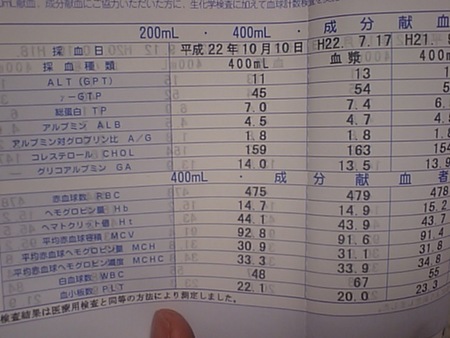 成分献血にご協力いただいた方に、生化学検査に加えて血球計数検査を
200mL ・ 400mL ・ 成 分 献 血
採 血 日 平成 22 年 10 月 10 日 H22. 7. 17 H21.
採 血 種 類 400mL 血 漿 400m
ALT (GPT) 11 13 1
γ－GTP 45 54 5
総蛋白 TP 7.0 7.4 6.
アルブミン ALB 4.5 4.7 4.
アルブミン対グロブリン比 A/G 1.8 1.8 1.8
コレステロール CHOL 159 163 154
グリコアルブミン GA 14.0 13.5 13.9
400mL ・ 成 分 献 血 者
赤血球数 RBC 475 479 478
ヘモグロビン量 Hb 14.7 14.9 15.2
ヘマトクリット値 Ht 44.1 43.9 43.7
平均赤血球容積 MCV 92.8 91.6 91.4
平均赤血球ヘモグロビン量 MCH 30.9 31.1 31.8
平均赤血球ヘモグロビン濃度 MCHC 33.3 33.9 34.8
白血球数 WBC 48 67 55
血小板数 PLT 22.1 20.0 23.3
検査結果は医療用検査と同等の方法により測定しました。